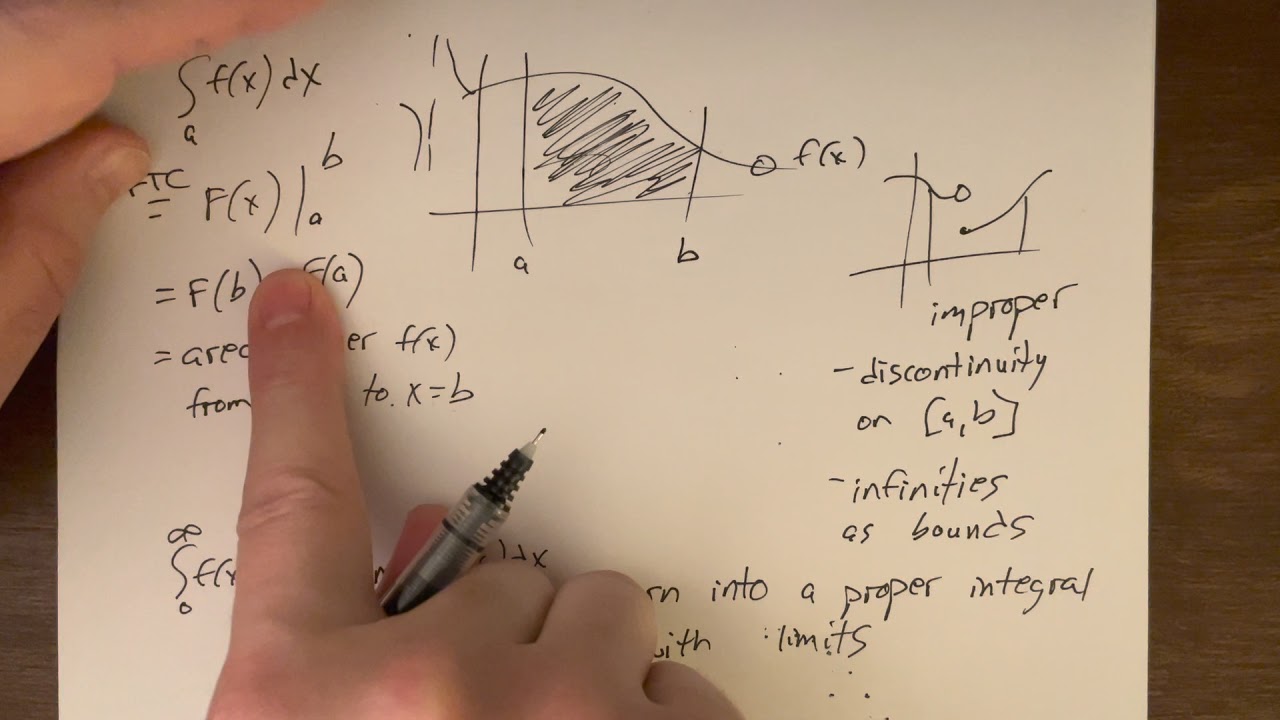 ∫ f(x) dx
a
b
= F(x) |
a
= F(b) F(a)
= f(x)
from to x=b
f(x)
a
b
improper
- discontinuity
on [a,b]
- infinities
as bounds
∞
∫ f(x dx
0
into a proper integral
limits